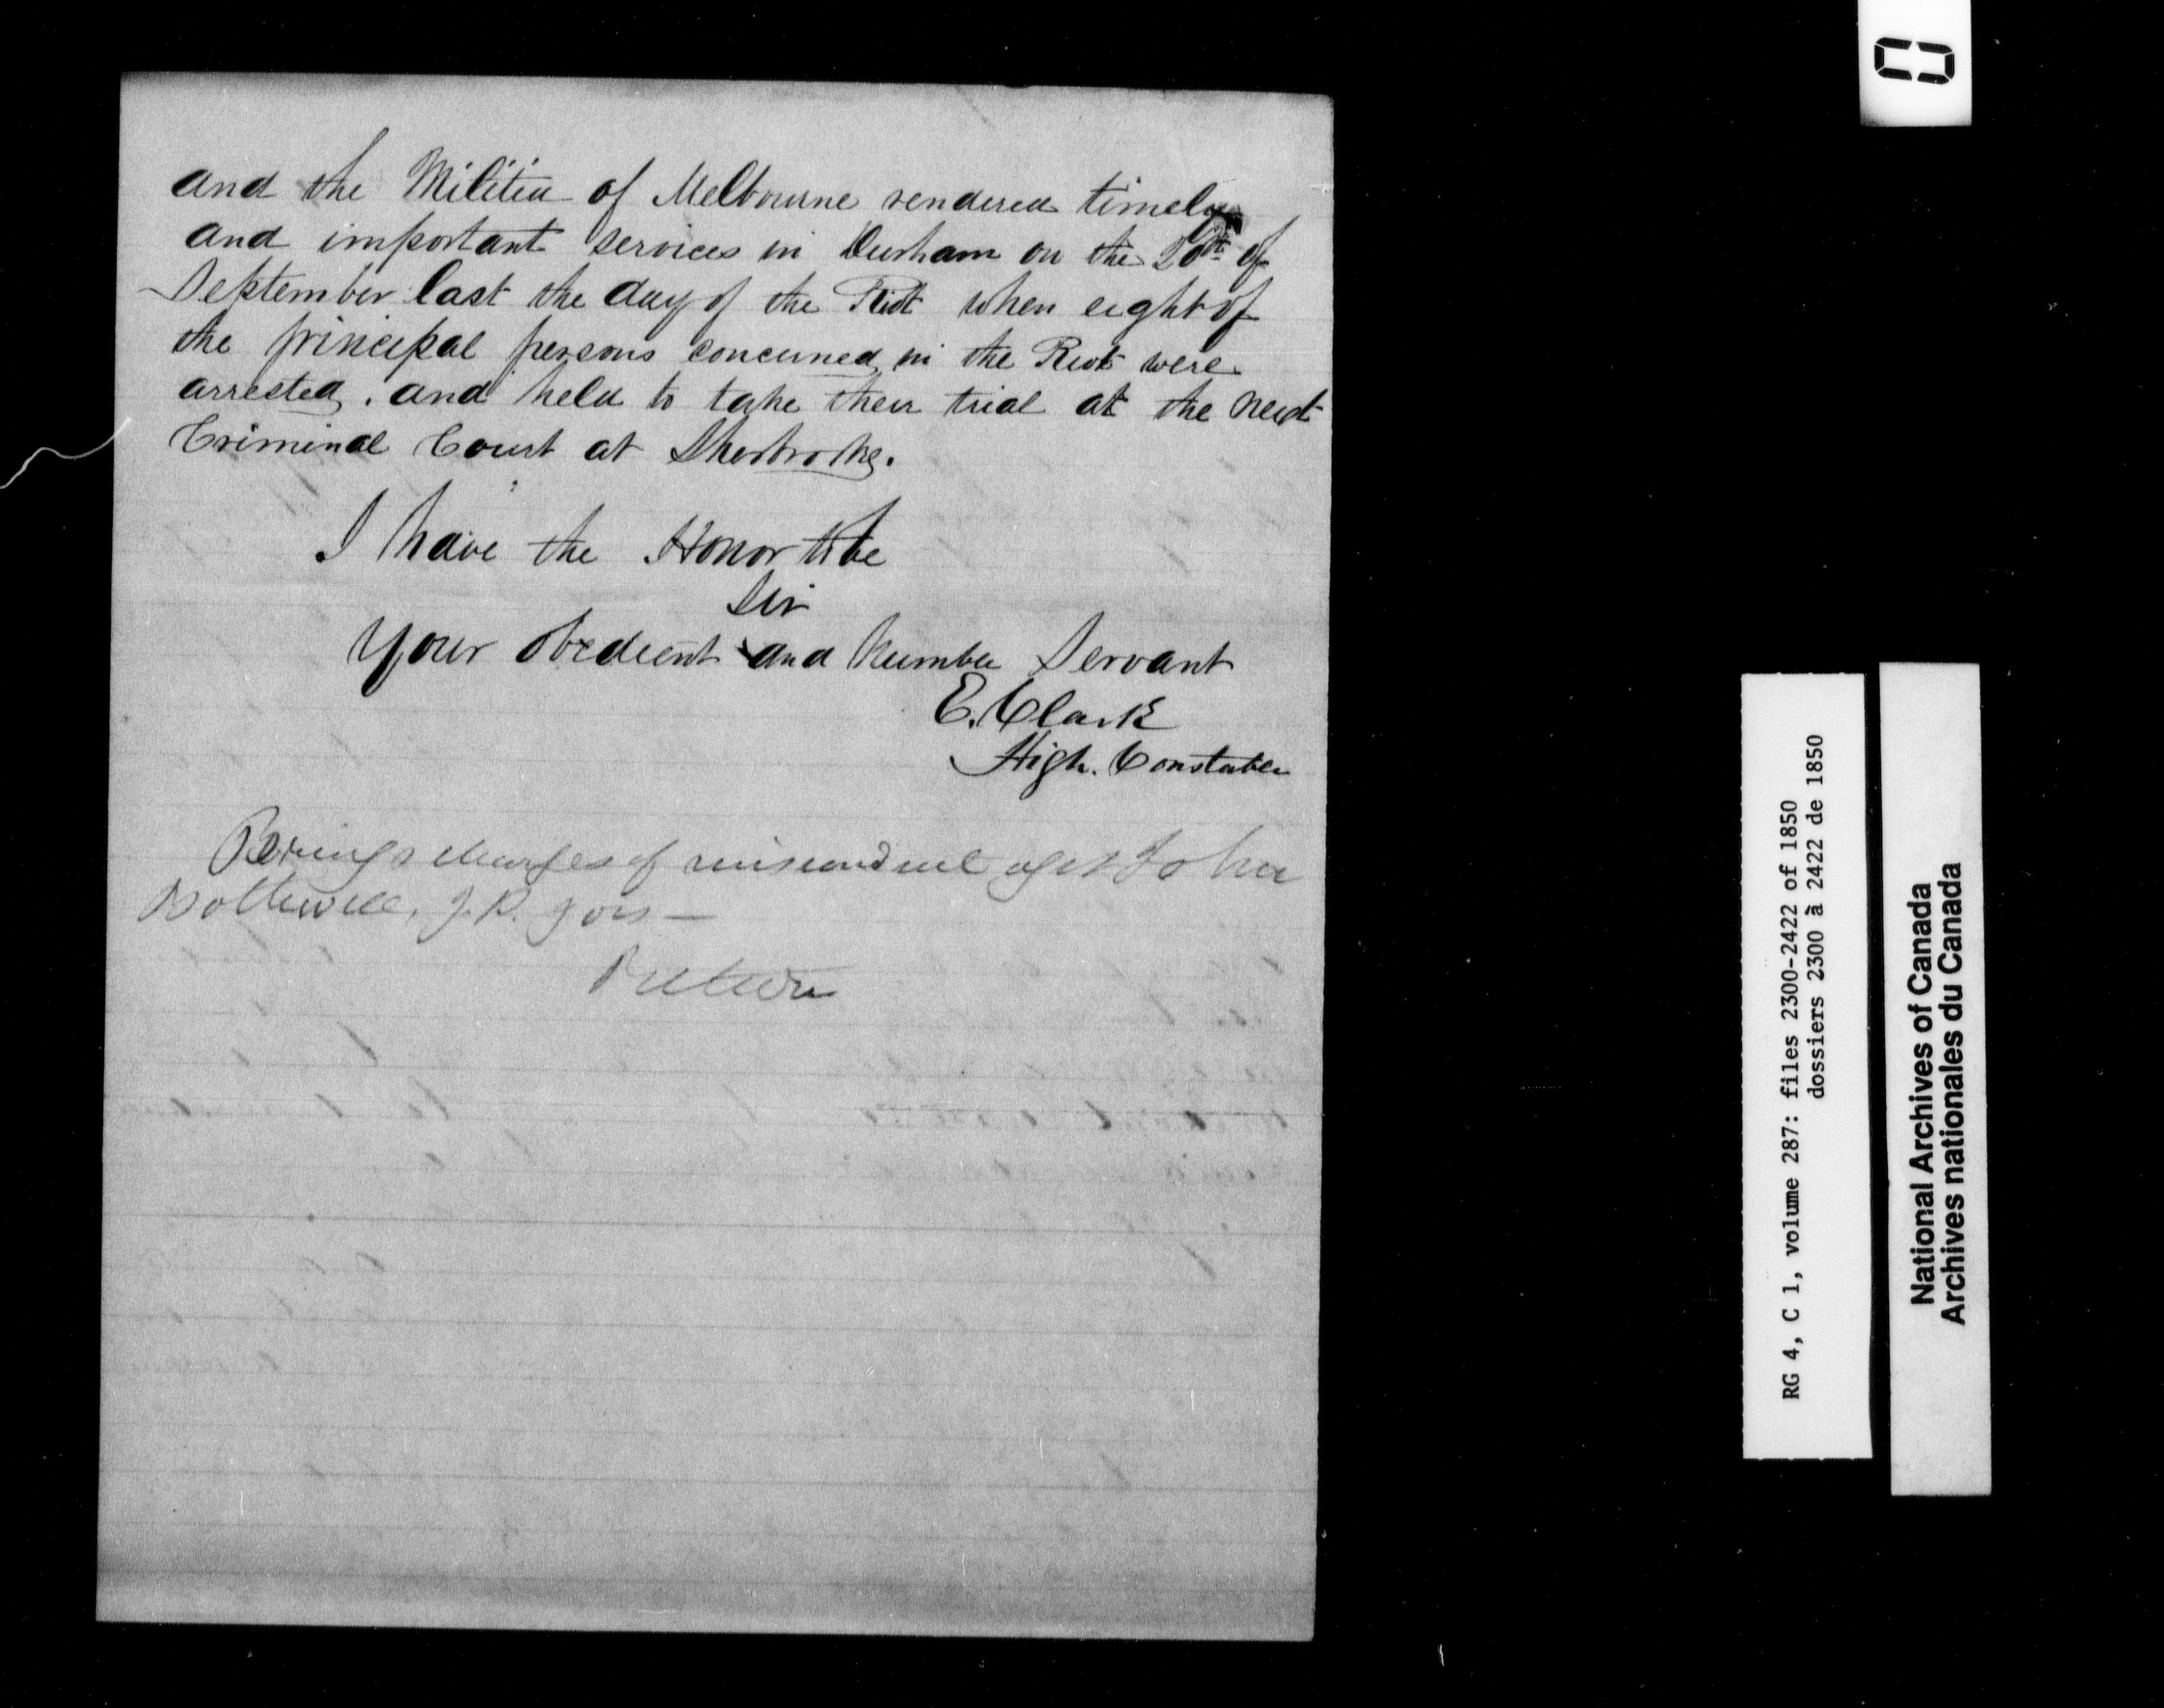 and the Militia of Melbourne rendered timely
and important services in Durham on the 20th of
September last the day of the Riot when eight of
the principal persons concerned in the Riot were
arrested. and held to take their trial at the next
Criminal Court at Sherbrooke.
I have the Honor to be
Sir
Your obedient and humble Servant
E. Clark
High. Constable
Brings charges of misconduct agst John
Bothwell, J.P.
RG 4, C 1, volume 287: files 2300-2422 of 1850
dossiers 2300 à 2422 de 1850
National Archives of Canada
Archives nationales du Canada